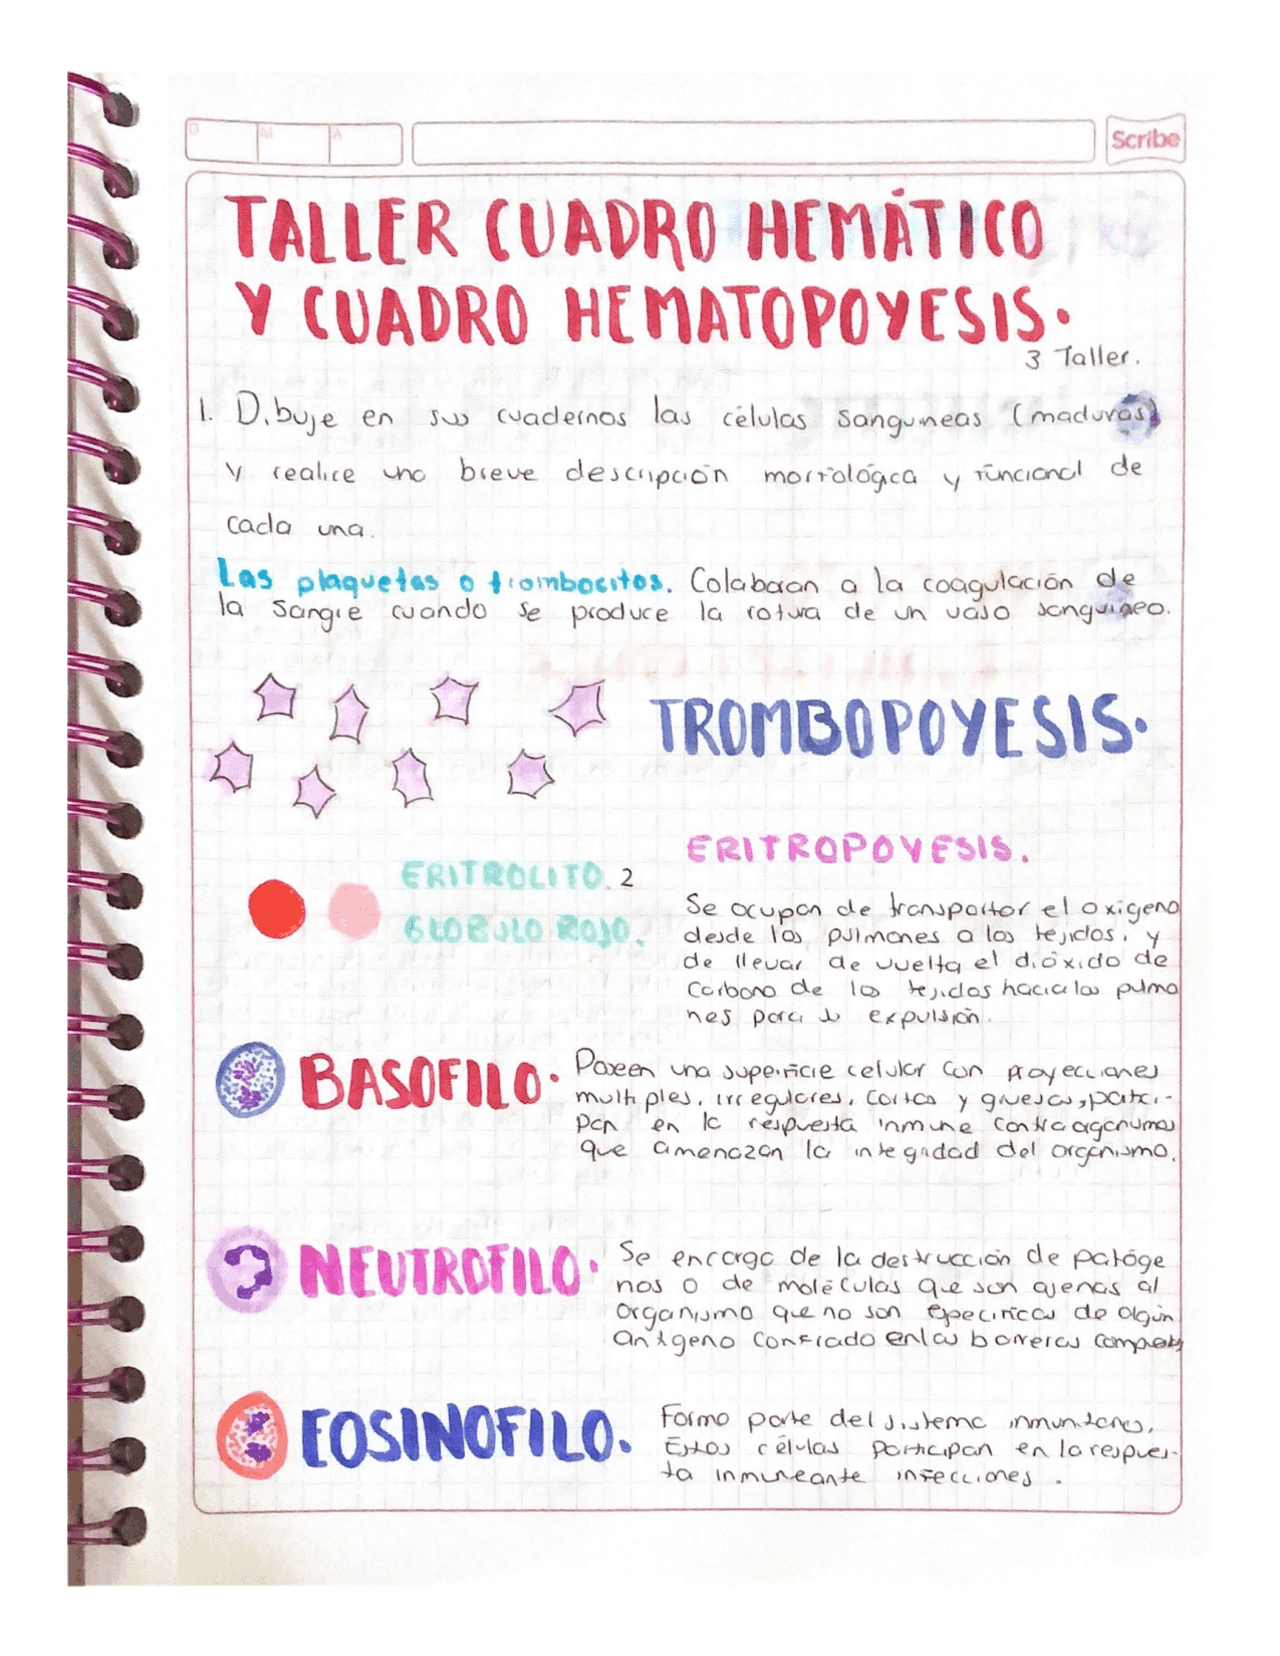 D M A
Scribe
TALLER CUADRO HEMÁTICO
Y CUADRO HEMATOPOYESIS.
3 Taller.
1. Dibuje en sus cuadernos las células sanguineas (maduras)
y realice una breve descripción morfológica y funcional de
cada una.
Las plaquetas o trombocitos. Colaboran a la coagulación de
la sangre cuando se produce la rotura de un vaso sanguíneo.
TROMBOPOYESIS.
ERITROPOYESIS.
ERITROLITO. 2
GLOBULO ROJO.
Se ocupan de transportar el oxigeno
desde los pulmones a los tejidos, y
de llevar de vuelta el dióxido de
Carbono de los tejidos hacia los pulmo
nes para su expulsión.
BASOFILO.
Poseen una superficie celular con proyecciones
multiples, irregulares, cortas y gruesas, partici-
pan en la respuesta inmune contra organismos
que amenazan la integridad del organismo.
NEUTROFILO.
Se encarga de la destrucción de patóge
nos o de moléculas que son ajenas al
organismo que no son especificas de algún
antígeno confiado en las barreras
EOSINOFILO.
Forma parte del sistema inmunitario,
Estas células participan en la respues-
ta inmuneante infecciones.